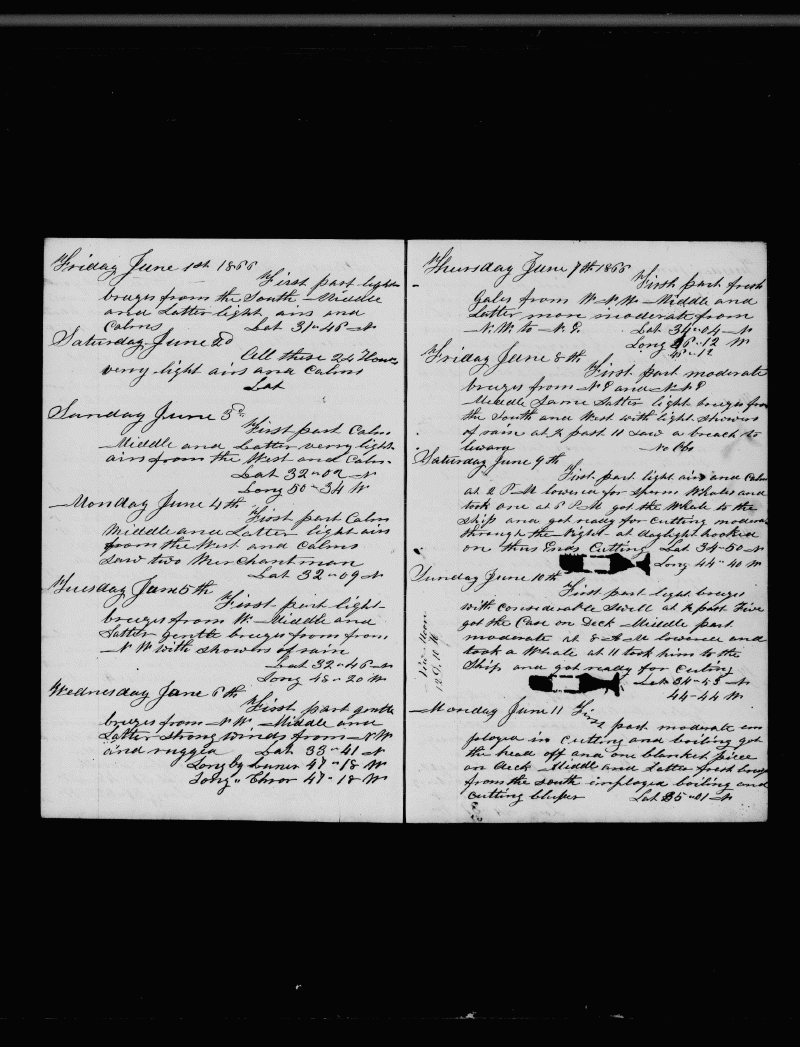 Friday June 1st 1866
First part light
breezes from the South Middle
and Latter light airs and
Calms Lat 31-46 N
Saturday June 2d
All these 24 Hours
very light airs and Calms
Lat
Sunday June 3d
First part Calm
Middle and Latter very light
airs from the West and Calm
Lat 32-02 N
Long 50-34 W
Monday June 4th
First part Calm
Middle and Latter light airs
from the West and Calms
Saw two Merchantman
Lat 32-09 N
Tuesday June 5th
First part light
breezes from W. Middle and
Latter gentle breezes from from
N W with showers of rain
Lat 32-46 N
Long 48-20 W
Wednesday June 6th
First part gentle
breezes from N W Middle and
Latter Strong winds from N W
and rugged Lat 33-41 N
Long by Luner 47-18 W
Long " Chror 47-18 W
Thursday June 7th 1866
First part fresh
Gales from W N W Middle and
Latter more moderate from
N. W. to N. E. Lat 34-04 N
Long 46-12 W
46-12
Friday June 8th
First part moderate
breezes from N E and N N E
Middle Same Latter light breezes from
the South and West with light showers
of rain at ½ past 11 saw a breach to
leward No Obs
Saturday June 9th
First part light airs and Calm
at 2 P M lowered for Sperm Whales and
took one at 6 P M got the Whale to the
Ship and got ready for Cutting moderate
through the Night at daylight hooked
on thus Ends Cutting Lat 34-50 N
Long 44-40 W
Sunday June 10th
First part light breezes
with considerable Swell at ½ past Five
got the Case on Deck Middle part
moderate at 8 A M lowered and
took a Whale at 11 took him to the
Ship and got ready for Cuting
Lat 34-53 N
44-44 W
Monday June 11
First part moderate em
ployed in Cutting and boiling got
the head off and one blanket piece
on deck Middle and Latter fresh breezes
from the South imployed boiling and
Cutting blubber Lat 35-01 N